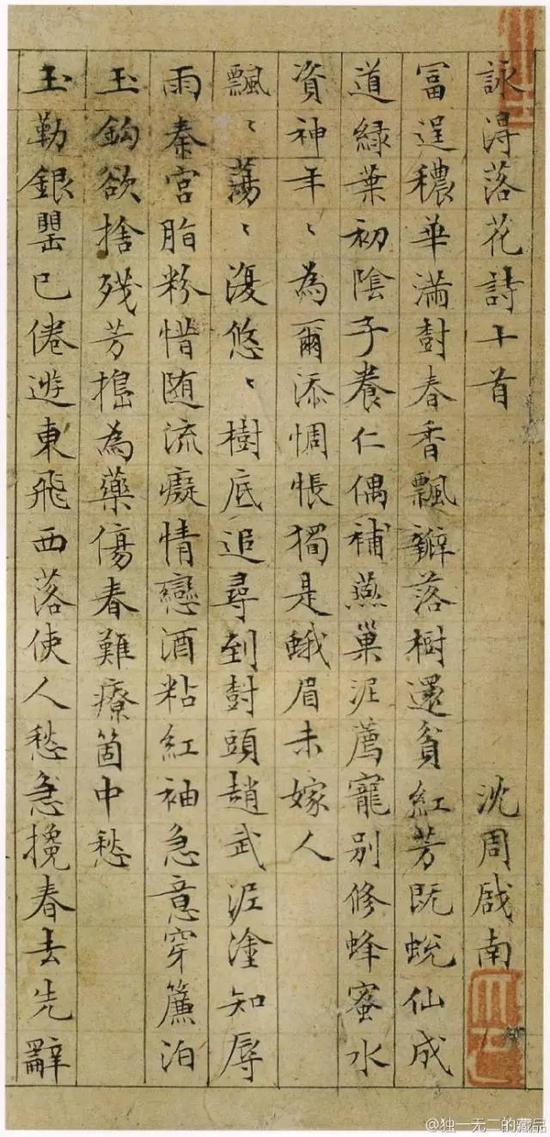 詠淂落花詩十首 沈周啟南
富逞穠華滿樹春香飄瓣落樹還貧紅芳既蛻仙成
道緑葉初陰子養仁偶補燕巢泥薦寵別修蜂蜜水
資神年〻為爾添惆悵獨是蛾眉未嫁人
飄〻蕩〻復悠〻樹底追尋到樹頭趙武泥塗知辱
雨秦宮脂粉惜随流癡情戀酒粘紅袖急意穿簾泊
玉鈎欲捨残芳搗為藥傷春難療箇中愁
玉勒銀罌已倦遊東飛西落使人愁急攙春去先辭
@独一无二的藏品